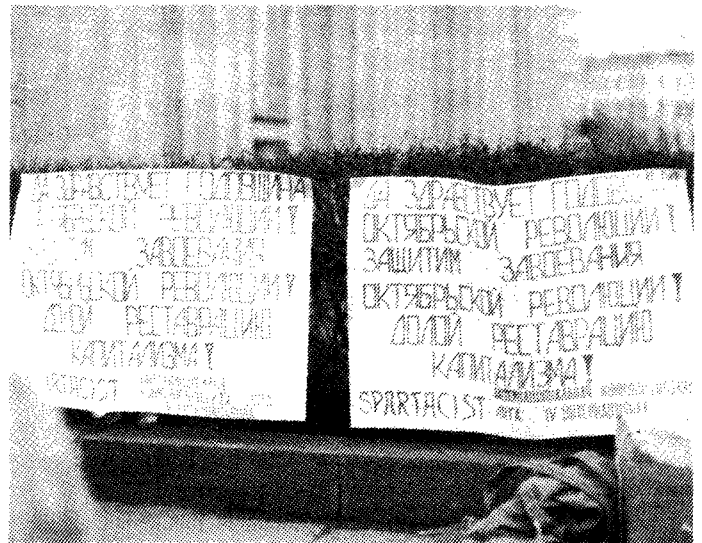 ДА ЗДРАВСТВУЕТ ГОДОВЩИНА
ОКТЯБРЬСКОЙ РЕВОЛЮЦИИ!
ЗАВОЕВАНИЯ
ОКТЯБРЬСКОЙ РЕВОЛЮЦИИ!
ДОЛОЙ РЕСТАВРАЦИЮ
КАПИТАЛИЗМА!
SPARTACIST
ДА ЗДРАВСТВУЕТ
ОКТЯБРЬСКОЙ РЕВОЛЮЦИИ!
ЗАЩИТИМ ЗАВОЕВАНИЯ
ОКТЯБРЬСКОЙ РЕВОЛЮЦИИ!
ДОЛОЙ РЕСТАВРАЦИЮ
КАПИТАЛИЗМА!
SPARTACIST